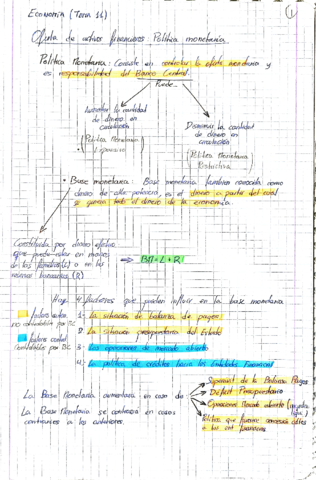 Economía (Tema 11)
1
Oferta de activos financieros. Política monetaria
Política Monetaria: Consiste en controlar la oferta monetaria y
es responsabilidad del Banco Central.
Puede
Aumentar la cantidad
de dinero en
circulación
(Política Monetaria
Expansiva)
Disminuir la cantidad
de dinero en
circulación
(Política Monetaria
Restrictiva)
• Base monetaria: Base monetaria también conocida como
dinero de alta potencia, es el dinero a partir del cual
se genera todo el dinero de la economía.
Constituida por dinero efectivo
que puede estar en manos
de las familias (L) o en las
reservas bancarias (R)
⇒ BM = L + R
Hay 4 factores que pueden influir en la base monetaria
1- La situación de balanza de pagos
2- La situación presupuestaria del Estado
3- Las operaciones de mercado abierto
4- La política de créditos hacia las Entidades Financieras
no controlables por BC
controlables por BC
La Base Monetaria aumentará en caso de
Superávit de la Balanza Pagos
Déficit Presupuestario
Operaciones Mercado abierto
Política que favorece concesión
La Base Monetaria se contraerá en casos
contrarios a los anteriores.